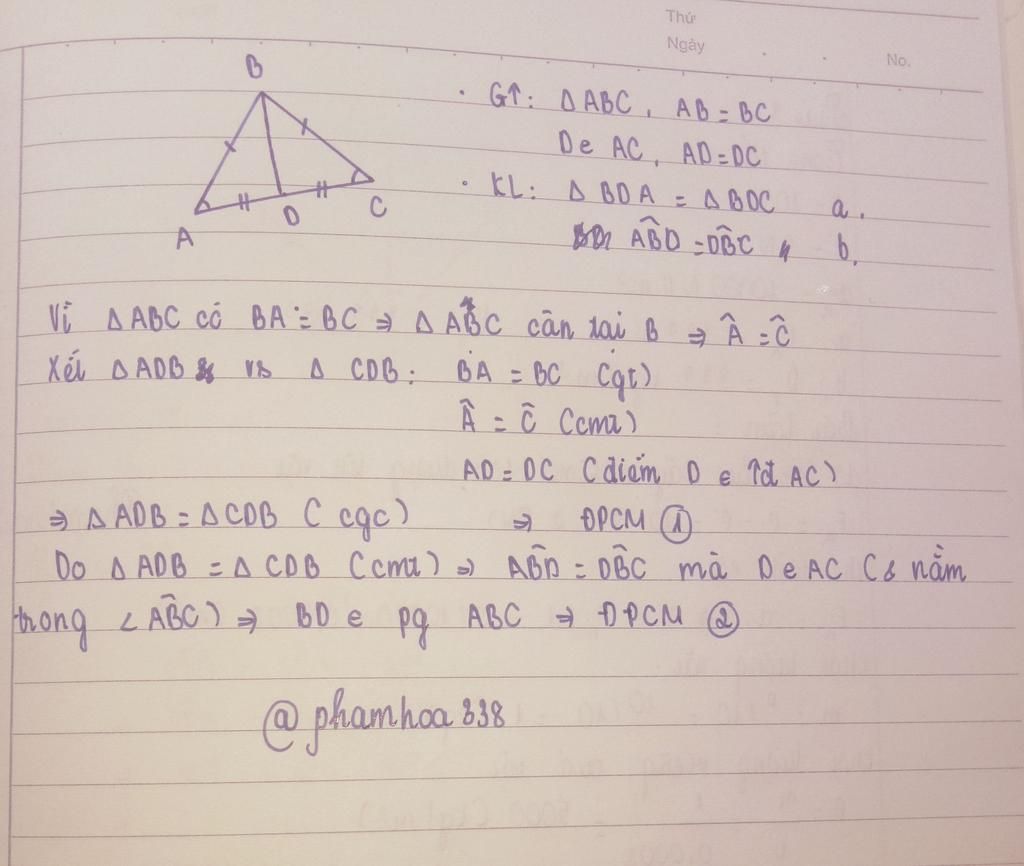 Thứ
Ngày
No.
B
A
D
C
· GT: Δ ABC, AB = BC
D ∈ AC, AD = DC
· KL: Δ BDA = Δ BDC a.
AB̂D = DB̂C b.
Vì Δ ABC có BA = BC ⇒ Δ ABC cân tại B ⇒ Â = Ĉ
Xét Δ ADB vs Δ CDB: BA = BC (gt)
Â = Ĉ (cmt)
AD = DC (điểm D ∈ tđ AC)
⇒ Δ ADB = Δ CDB (cgc) ⇒ ĐPCM ①
Do Δ ADB = Δ CDB (cmt) ⇒ AB̂D = DB̂C mà D ∈ AC (& nằm
trong < AB̂C) ⇒ BD ∈ pg ABC ⇒ ĐPCM ②
@phamhoa338